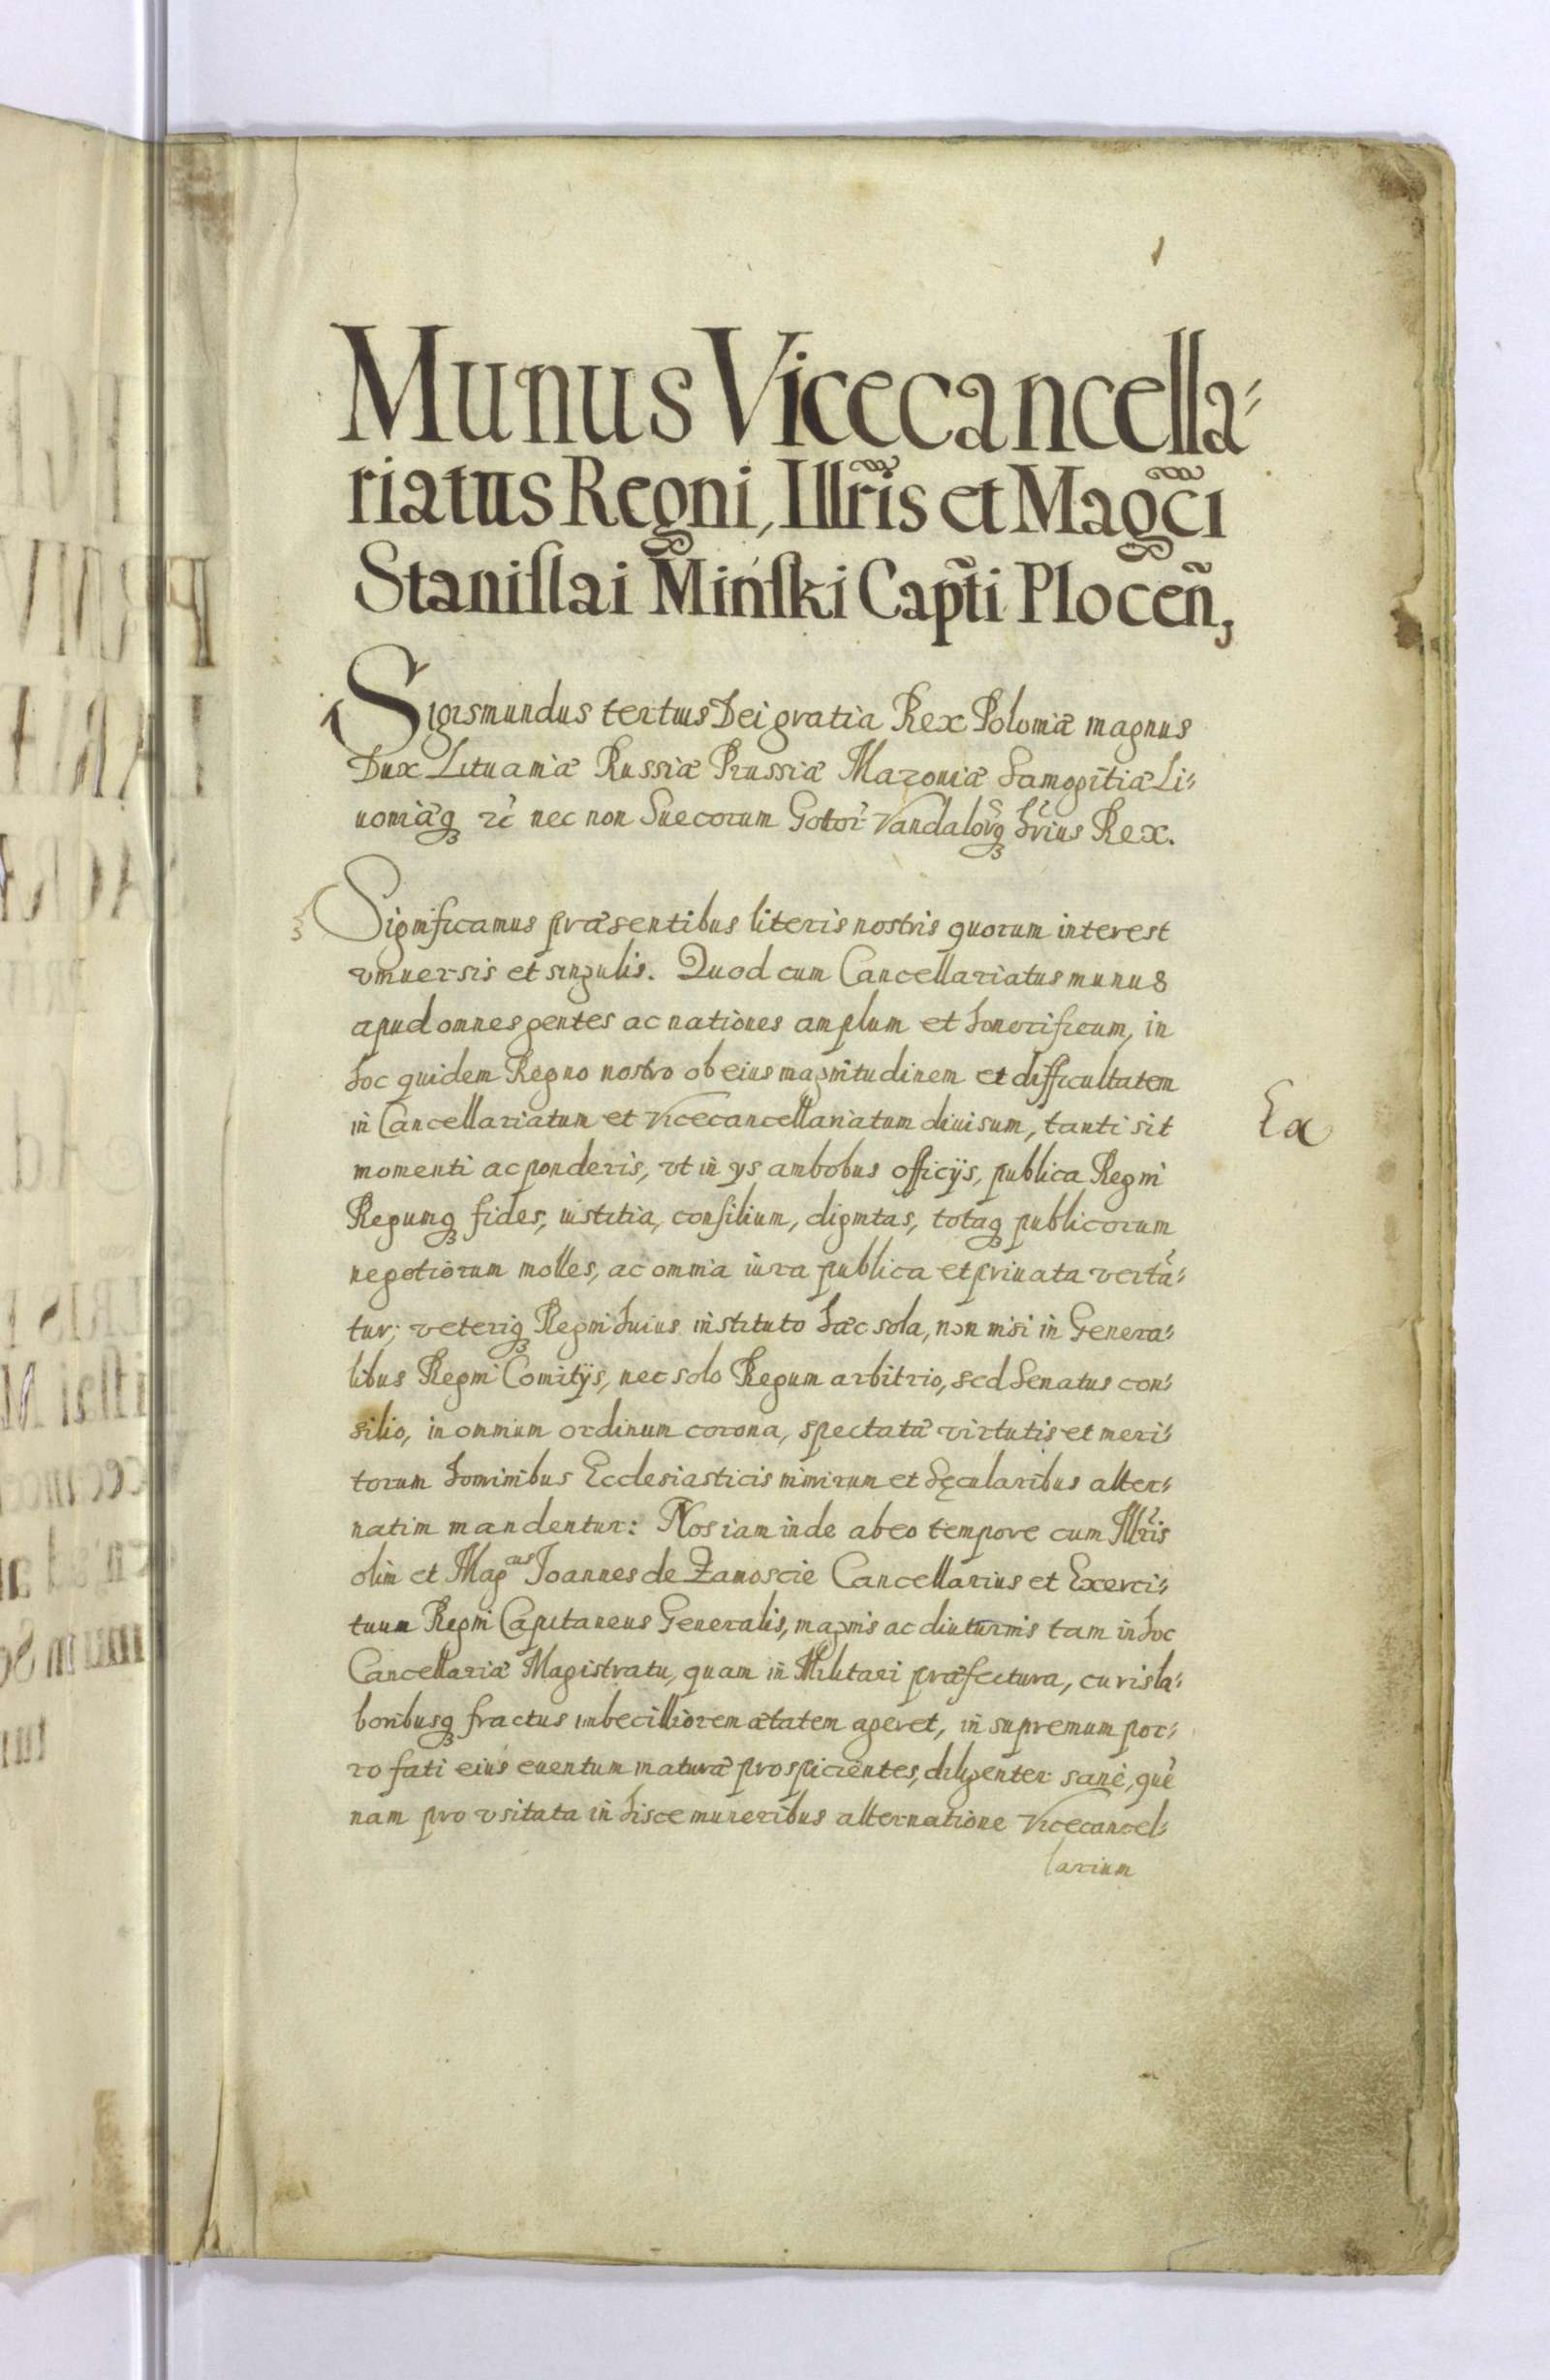 1
Munus Vicecancella⸗
riatus Regni, Illr̃is et Mag̃ci
Staniſlai Mińſki Cap̃ti Ploceñ,
Sigismundus tertius Dei gratia Rex Poloniæ magnus
Dux Lituaniæ Russiæ Prussiæ Mazouiæ Samogitiæ Li⸗
uoniæq₃ ꝛc̃ nec non Suecorum Gotor̃ Vandalor̃q₃ hr̃ius Rex.
Significamus præsentibus literis nostris quorum interest
vniuersis et singulis. Quod cum Cancellariatus munus
apud omnes gentes ac nationes amplum et honorificum, in
hoc quidem Regno nostro ob eius magnitudinem et difficultatem
in Cancellariatum et Vicecancellariatum diuisum, tanti sit
Ex
momenti ac ponderis, vt in ys ambobus officijs, publica Regni
Regumq₃ fides, iustitia, conſilium, dignitas, totaq₃ publicorum
negotiorum molles, ac omnia iura publica et priuata vertã⸗
tur; veteriq₃ Regni huius instituto hæc sola, non nisi in Genera⸗
libus Regni Comitijs, nec solo Regum arbitrio, sed Senatus con⸗
silio, in omnium ordinum corona, spectatæ virtutis et meri⸗
torum hominibus Ecclesiasticis nimirum et Sęcularibus alter⸗
natim mandentur: Nos iam inde ab eo tempore cum Illr̃is
olim et Mag^cus Joannes de Zamoscie Cancellarius et Exerci⸗
tuum Regni Capitaneus Generalis, magnis ac diuturnis tam in hoc
Cancellariæ Magistratu, quam in Militari præfectura, curis la⸗
boribusq₃ fractus imbecilliorem ætatem ageret, in supremum por⸗
ro fati eius euentum maturæ prospicientes, diligenter sanè, què
nam pro vsitata in hisce muneribus alternatione Vicecancel⸗
larium